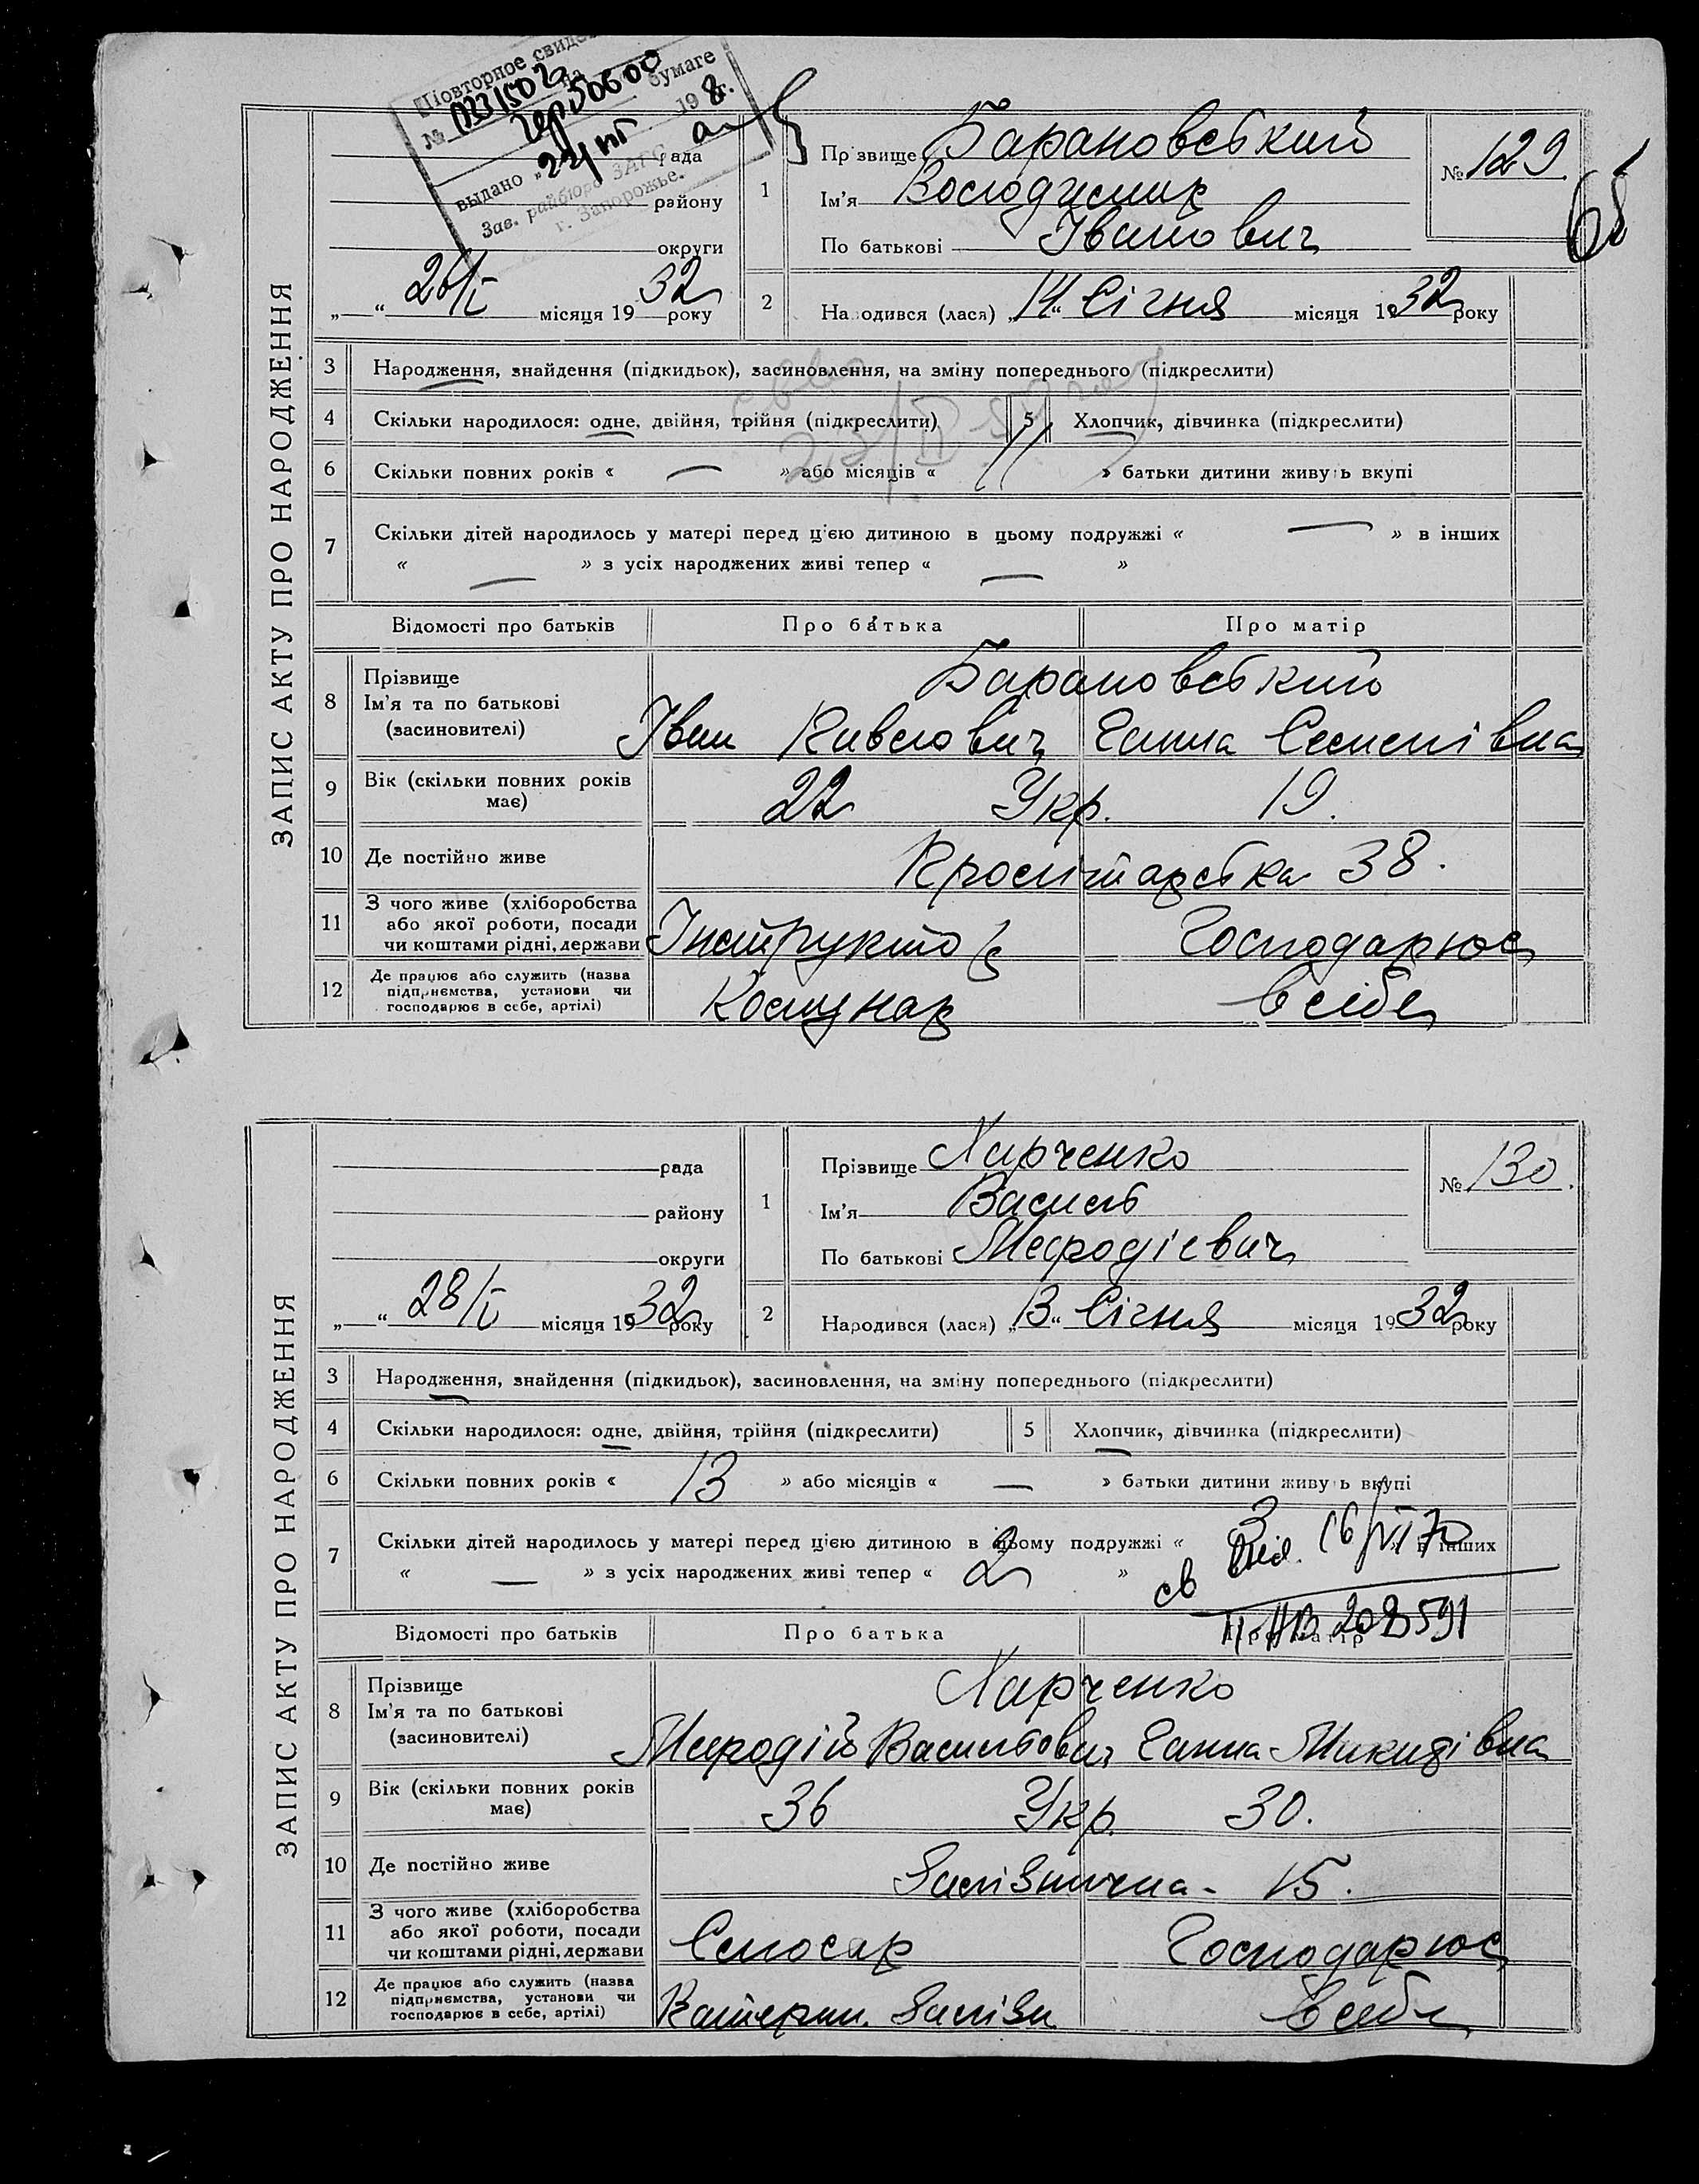 Повторное
№
на бумаге
выдано „22/III 198 г.
Зав. райбюро ЗАГС
г. Запорожье.
ЗАПИС АКТУ ПРО НАРОДЖЕННЯ
рада
району
округи
„ “ 28/I місяця 1932 року
1 Прізвище Барановський
№ 129.
65
Ім'я Володимир
По батькові Іванович
2 Народився (лася) „14“ Січня місяця 1932 року
3 Народження, знайдення (підкидьок), засиновлення, на зміну попереднього (підкреслити)
4 Скільки народилося: одне, двійня, трійня (підкреслити)
5 Хлопчик, дівчинка (підкреслити)
6 Скільки повних років « — » або місяців « 11 » батьки дитини живуть вкупі
7 Скільки дітей народилось у матері перед цією дитиною в цьому подружжі « — » в інших
« — » з усіх народжених живі тепер « — »
Відомості про батьків Про батька Про матір
8 Прізвище Барановський
Ім'я та по батькові
(засиновителі) Іван Павлович Ганна Семенівна
9 Вік (скільки повних років
має) 22 Укр. 19.
10 Де постійно живе Пролітарська 38.
11 З чого живе (хліборобства
або якої роботи, посади
чи коштами рідні, держави Інструктор Господарює
12 Де працює або служить (назва
підприємства, установи чи
господарює в себе, артілі) Комунар в себе
ЗАПИС АКТУ ПРО НАРОДЖЕННЯ
рада
району
округи
„ “ 28/I місяця 1932 року
1 Прізвище Харченко
№ 130.
Ім'я Василь
По батькові Мефодієвич
2 Народився (лася) „13“ Січня місяця 1932 року
3 Народження, знайдення (підкидьок), засиновлення, на зміну попереднього (підкреслити)
4 Скільки народилося: одне, двійня, трійня (підкреслити)
5 Хлопчик, дівчинка (підкреслити)
6 Скільки повних років « 13 » або місяців « — » батьки дитини живуть вкупі
7 Скільки дітей народилось у матері перед цією дитиною в цьому подружжі « 3 » в інших
« — » з усіх народжених живі тепер « 2 »
св выд. 16/VII 70
Відомості про батьків Про батька Про матір
8 Прізвище Харченко
Ім'я та по батькові
(засиновителі) Мефодій Васильович Ганна Микитівна
9 Вік (скільки повних років
має) 36 Укр. 30.
10 Де постійно живе Залізнична - 15.
11 З чого живе (хліборобства
або якої роботи, посади
чи коштами рідні, держави Слюсар Господарює
12 Де працює або служить (назва
підприємства, установи чи
господарює в себе, артілі) Катерин. Залізн в себе